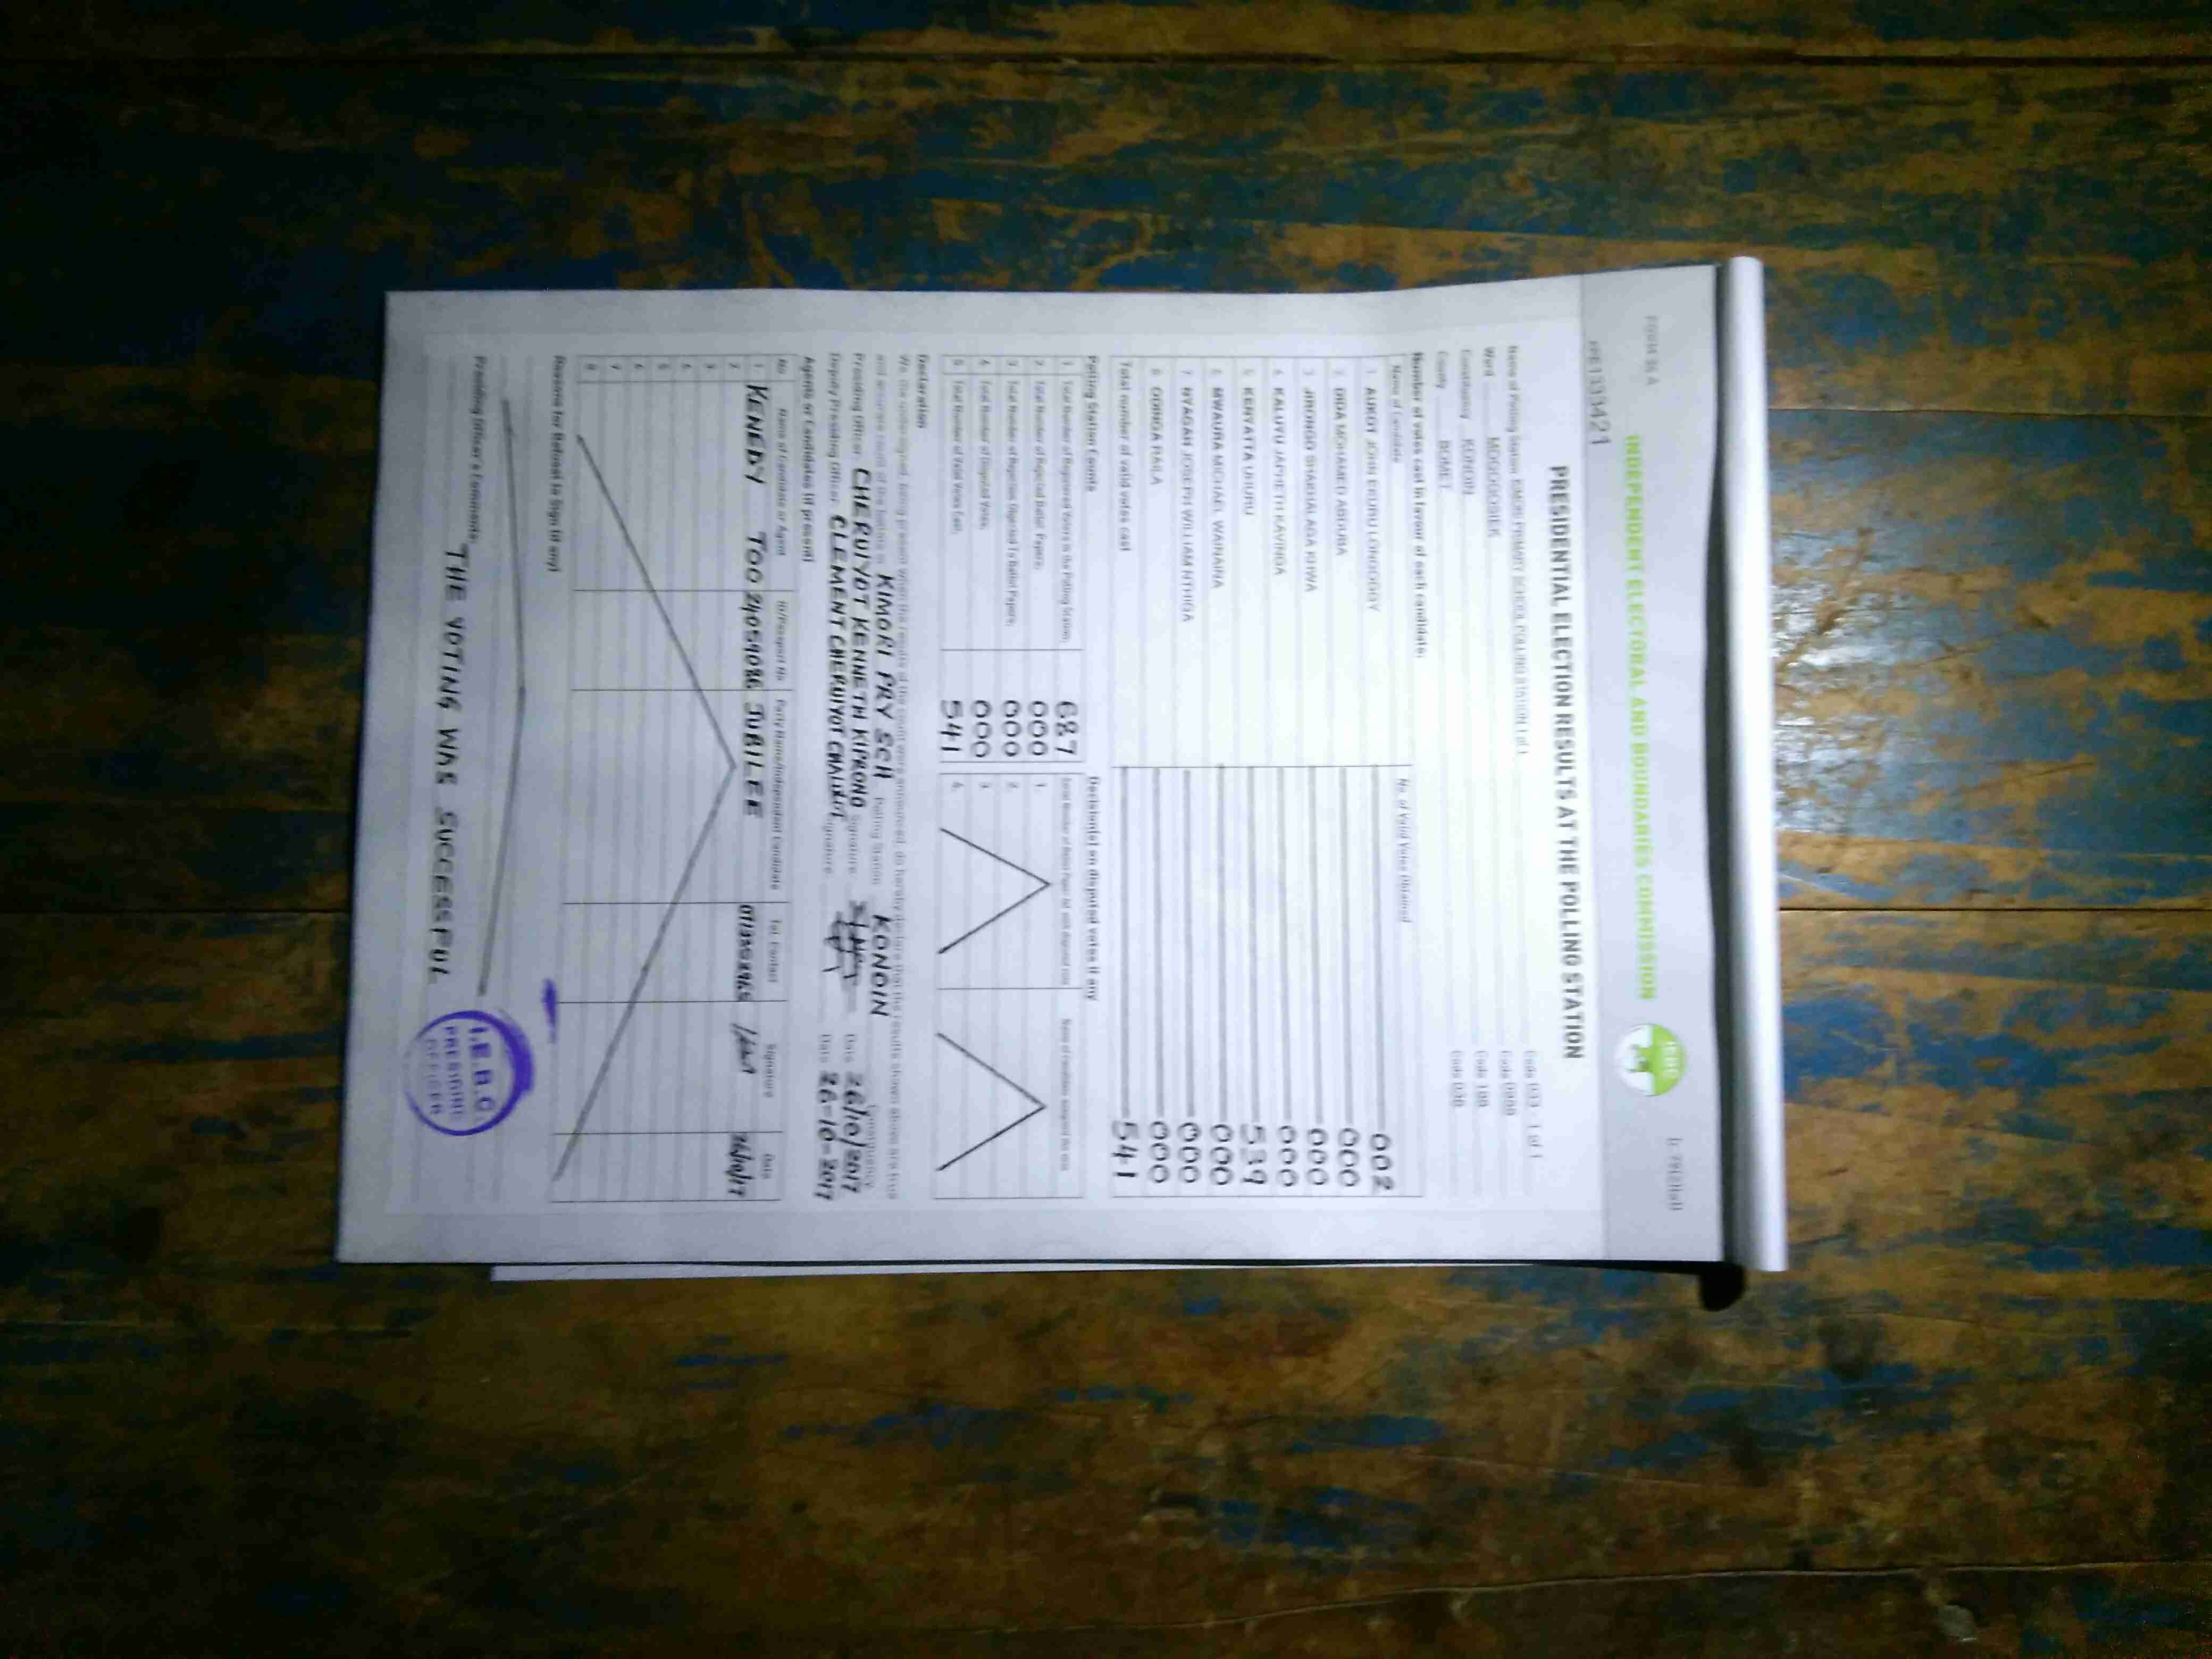 FORM 34 A
INDEPENDENT ELECTORAL AND BOUNDARIES COMMISSION
IEBC
PRESIDENTIAL ELECTION RESULTS AT THE POLLING STATION
Name of Polling Station KIMORI PRIMARY SCHOOL POLLING STATION 1 of 1 Code 033 1 of 1
Ward MOGOGOSIEK
Constituency KONOIN
County BOMET Code 036
Number of votes cast in favour of each candidate:
Name of Candidate No. of Valid Votes Obtained
1 AUKOT JOHN EKURU LONGOGGY 002
2 DIDA MOHAMED ABDUBA 000
3 JIRONGO SHAKHALAGA KHWA 000
4 KALUYU JAPHETH KAVINGA 000
5 KENYATTA UHURU 539
6 MWAURA MICHAEL WAINAINA 000
7 NYAGAH JOSEPH WILLIAM NTHIGA 000
8 ODINGA RAILA 000
Total number of valid votes cast 541
Polling Station Counts
1 Total Number of Registered Voters in the Polling Station 687
2 Total Number of Rejected Ballot Papers 000
3 Total Number of Rejection Objected To Ballot Papers 000
4 Total Number of Disputed Votes 000
5 Total Number of Valid Votes Cast 541
Decisions on disputed votes if any
1
2
3
4
Declaration
We, the undersigned, being present when the results of the count were announced, do hereby declare that the results shown above are true
and accurate count of the ballots in KIMORI PRY SCH Polling Station KONOIN Constituency
Presiding Officer CHERUIYOT KENNETH KIPRONO Signature Date 26/10/2017
Deputy Presiding Officer CLEMENT CHERUIYOT Signature Date 26-10-2017
Agents or Candidates (if present)
No Name of Candidate or Agent ID/Passport No Party Name/Independent Candidate Tel. Contact Signature Date
1 KENEDY TOO 24059086 JUBILEE 26/10/17
2
3
4
5
6
7
8
Reasons for Refusal to Sign (if any)
Presiding Officer's Comments:
THE VOTING WAS SUCCESSFUL
I.E.B.C.
PRESIDING
OFFICER